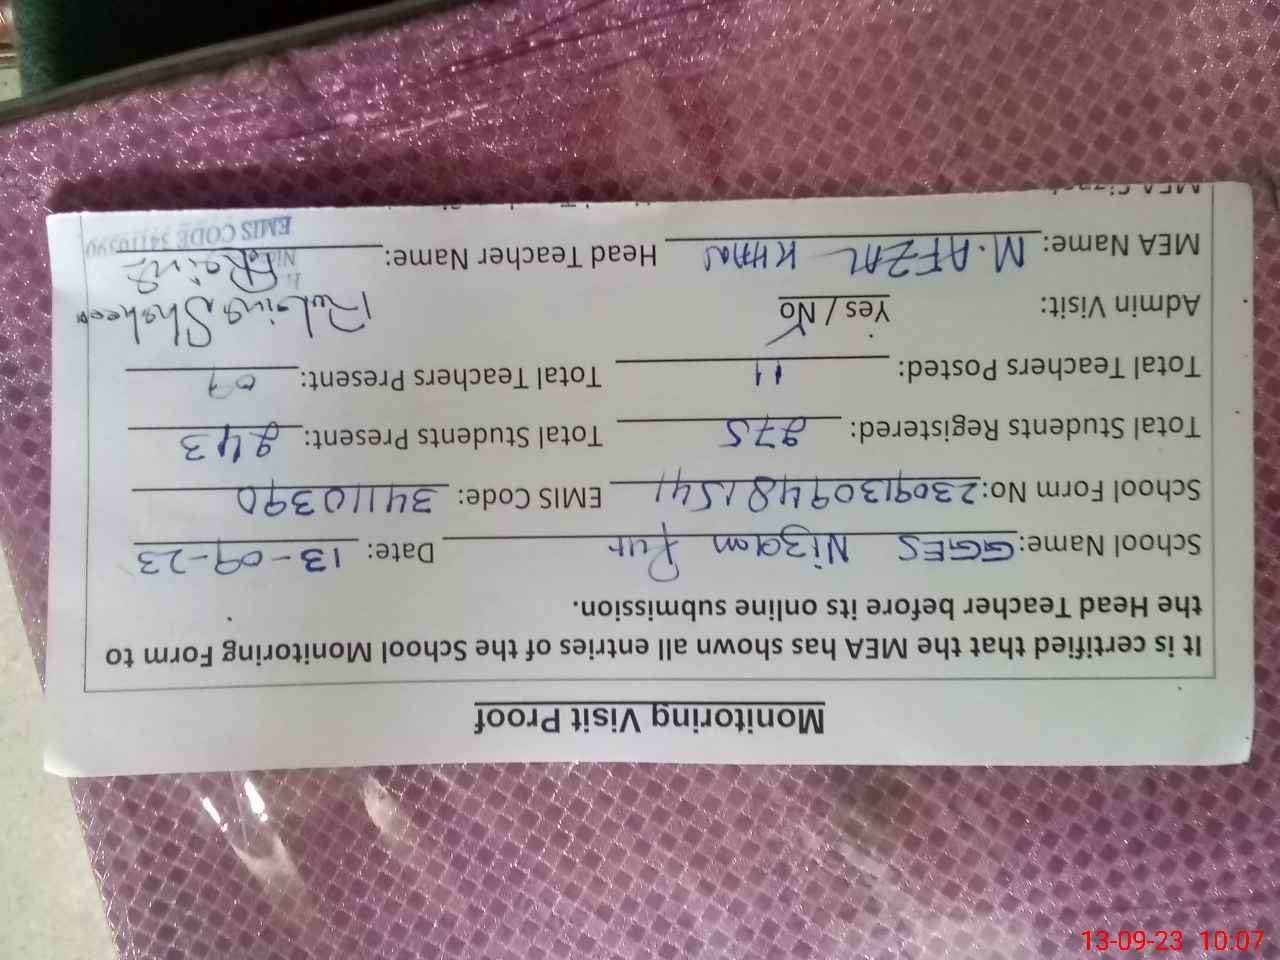 Monitoring Visit Proof
It is certified that the MEA has shown all entries of the School Monitoring Form to
the Head Teacher before its online submission.
School Name: GGES Nizam Pur Date: 13-09-23
School Form No: 23091309481541 EMIS Code: 34110390
Total Students Registered: 275 Total Students Present: 243
Total Teachers Posted: 11 Total Teachers Present: 09
Admin Visit: Yes / No
Rubina Shaheen
MEA Name: M. AFZAL KHAN Head Teacher Name:
EMIS CODE 34110390
13-09-23 10:07